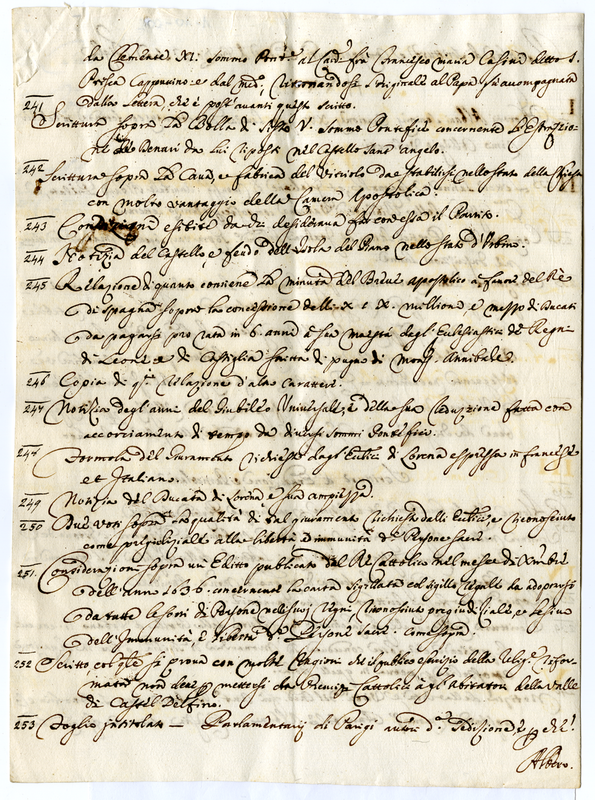 da Clemente XI. sommo Pont.e al Card. frà Francesco Maria Casini detto S.
Prisca Cappuccino: e dal med.o, ritornandosi l'originale al Papa fù accompagnata
dalla lettera, che è post' avanti questo scritto.
241 Scrittura sopra la Bolla di Sisto V. sommo Pontefice concernente l'Estrazio-
ne de Denari da lui riposti nel Castello Sant' Angelo.
242 Scrittura sopra la Cava, e fabrica del Vitriolo da stabilirsi nello stato della Chiesa
con molto vantaggio della Camera Apostolica.
243 esibite da chi desiderava fosse il Partito.
244 Notizia del Castello, e feudo dell' Isola del Piano nello stato d'Urbino.
245 Relazione di quanto contiene la minuta del Breve Appostolico à favore del Rè
di Spagna sopra la concessione delli X e IX. millione, e mezzo di Ducati
da pagarsi pro rata in 6. anni à sua maestà dagl' Eclesiastici de Regni
di Leone, e di Castiglia scritta di pugno di Mons.
246 Copia di q.a Relazione d'altro Carattere.
247 Notizia degl' anni del Giubileo Universale, e della sua reduzione fatta con
accorciamento di tempo da diversi sommi Pontefici.
248 Formola del Giuramento richiesto dagl' Eretici di Lorena espressa in francese
et Italiano.
249 Notizia del Ducato di Lorena e sua ampiezza.
250 Due voti sopra la qualità di tal giuramento richiesto dalli Eretici, e riconosciuto
come pregiudiziale alla libertà, e immunità di Persone sacre.
251. Considerazioni sopra un Editto publicato dal Rè Cattolico nel mese di
dell' Anno 1636. concernente la carta sigillata col sigillo Regale da adoprarsi
da tutte le sorti di Persone nelli suoi Regni, riconosciuto pregiudiziale, e lesivo
dell' Immunità, e libertà di Persone sacre. come sopra.
252 Scritto col q.le si prova con molte ragioni che il publico esercizio della Relig.e rifor-
mata non deve p.mettersi da Principe Cattolico agl' Abitatori della Valle
di Castel Delfino.
253 Foglio intitolato — Parlamentarij di Parigi autori d.